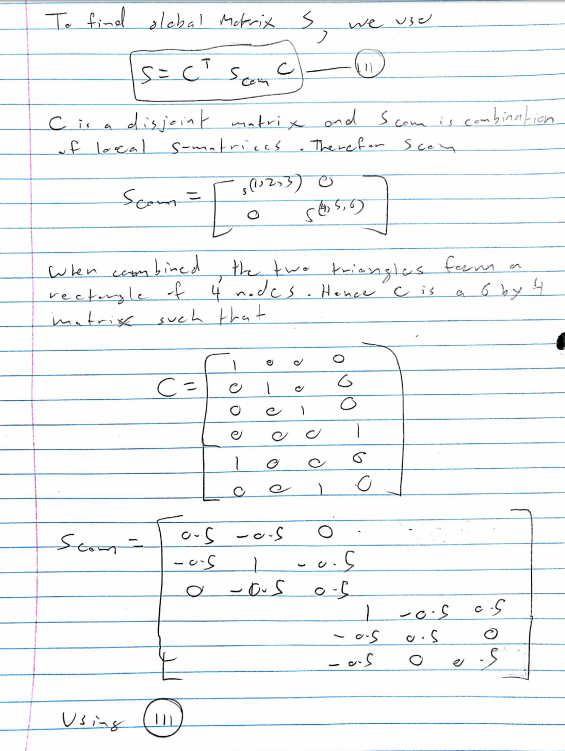 To find global Matrix S, we use
S = C^T S_com C — (III)
C is a disjoint matrix and S com is combination
of local S-matrices. Therefor S com
S_com = [ s^(1,2,3) 0
0 s^(4,5,6) ]
When combined, the two triangles form a
rectangle of 4 nodes. Hence C is a 6 by 4
matrix such that
1 0 0 0
C = 0 1 0 0
0 0 1 0
0 0 0 1
1 0 0 0
0 0 1 0
S_com = 0.5 -0.5 0
-0.5 1 -0.5
0 -0.5 0.5
1 -0.5 0.5
-0.5 0.5 0
-0.5 0 0.5
Using (III)